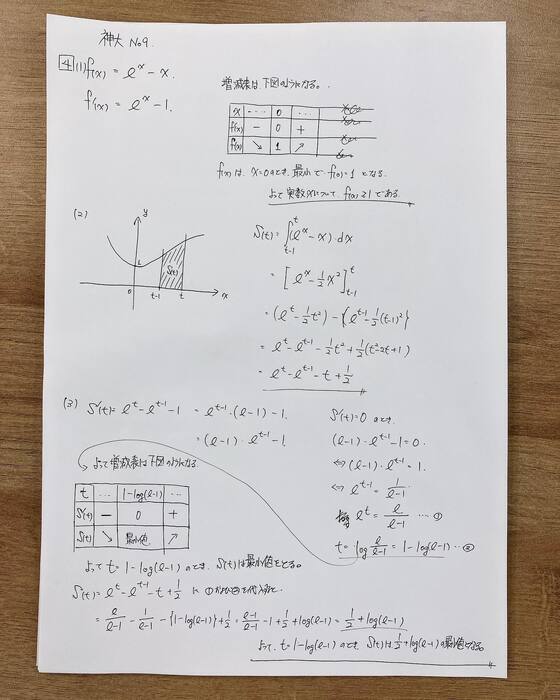 神大 No9.
4 (1) f(x) = e^x - x.
f'(x) = e^x - 1.
増減表は下図のようになる。
x … 0 …
f'(x) - 0 +
f(x) ↘ 1 ↗
f(x)は、x=0のとき、最小で f(0)=1 となる。
よって実数xについて f(x)≧1 である。
(2)
y
S(t)
0 t-1 t x
S(t) = ∫_{t-1}^{t} (e^x - x) dx
= [e^x - 1/2 x^2]_{t-1}^{t}
= (e^t - 1/2 t^2) - {e^{t-1} - 1/2 (t-1)^2}
= e^t - e^{t-1} - 1/2 t^2 + 1/2 (t^2 - 2t + 1)
= e^t - e^{t-1} - t + 1/2
(3) S'(t) = e^t - e^{t-1} - 1 = e^{t-1}・(e-1) - 1.
= (e-1)・e^{t-1} - 1.
S'(t)=0 のとき.
(e-1)・e^{t-1} - 1 = 0.
⇔ (e-1)・e^{t-1} = 1.
⇔ e^{t-1} = 1/(e-1)
e^t = e/(e-1) … ①
t = log e/(e-1) = 1 - log(e-1) … ②
よって増減表は下図のようになる.
t … 1-log(e-1) …
S'(t) - 0 +
S(t) ↘ 最小値 ↗
よって t = 1 - log(e-1) のとき、S(t)は最小値をとる。
S(t) = e^t - e^{t-1} - t + 1/2 に ①②を代入して
= e/(e-1) - 1/(e-1) - {1 - log(e-1)} + 1/2 = (e-1)/(e-1) - 1 + 1/2 + log(e-1) = 1/2 + log(e-1)
よって、t = 1 - log(e-1) のとき S(t)は 1/2 + log(e-1) の最小値となる。